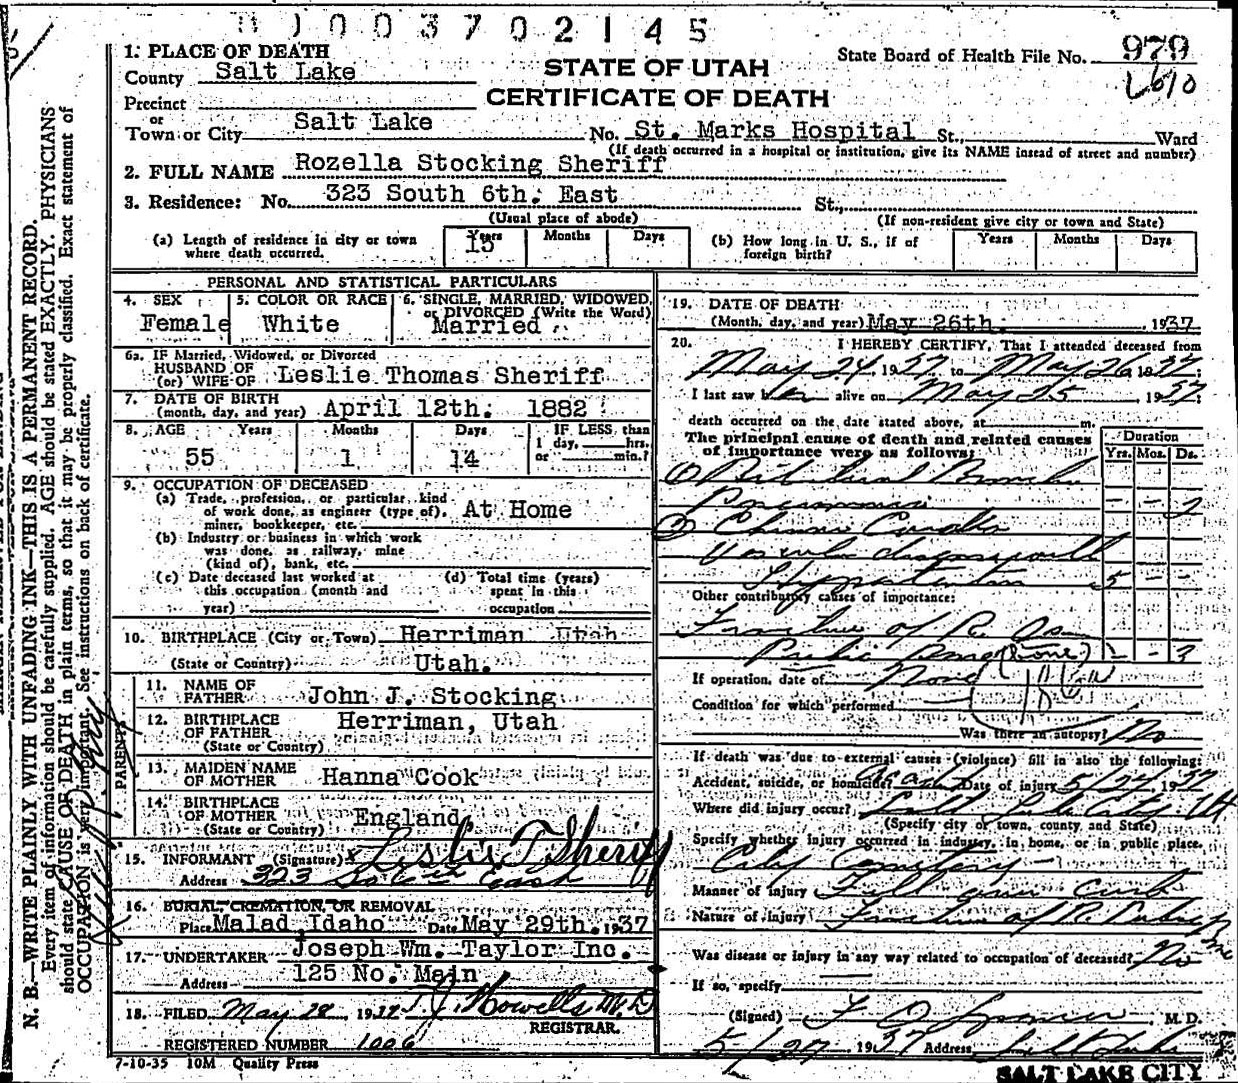 0 1 0 0 3 7 0 2 1 4 5
1. PLACE OF DEATH
County Salt Lake
Precinct
or
Town or City Salt Lake
STATE OF UTAH
CERTIFICATE OF DEATH
State Board of Health File No. 979
No. St. Marks Hospital St., Ward
(If death occurred in a hospital or institution, give its NAME instead of street and number)
2. FULL NAME Rozella Stocking Sheriff
3. Residence: No. 323 South 6th. East St.,
(Usual place of abode) (If non-resident give city or town and State)
(a) Length of residence in city or town where death occurred. Years 15 Months Days
(b) How long in U. S., if of foreign birth? Years Months Days
PERSONAL AND STATISTICAL PARTICULARS
4. SEX Female
5. COLOR OR RACE White
6. SINGLE, MARRIED, WIDOWED, or DIVORCED (Write the Word) Married
6a. IF Married, Widowed, or Divorced
HUSBAND OF
(or) WIFE OF Leslie Thomas Sheriff
7. DATE OF BIRTH
(month, day, and year) April 12th. 1882
8. AGE Years Months Days IF LESS than
55 1 14 1 day, hrs.
or min.?
9. OCCUPATION OF DECEASED
(a) Trade, profession, or particular kind
of work done, as engineer (type of), At Home
miner, bookkeeper, etc.
(b) Industry or business in which work
was done, as railway, mine
(kind of), bank, etc.
(c) Date deceased last worked at
this occupation (month and
year)
(d) Total time (years)
spent in this
occupation
10. BIRTHPLACE (City or Town) Herriman Utah
(State or Country) Utah.
PARENTS
11. NAME OF
FATHER John J. Stocking
12. BIRTHPLACE
OF FATHER Herriman, Utah
(State or Country)
13. MAIDEN NAME
OF MOTHER Hanna Cook
14. BIRTHPLACE
OF MOTHER England
(State or Country)
15. INFORMANT (Signature) Leslie T Sheriff
Address 323 So 6th East
16. BURIAL, CREMATION, OR REMOVAL
Place Malad, Idaho Date May 29th. 1937
17. UNDERTAKER Joseph Wm. Taylor Inc.
Address 125 No. Main
18. FILED May 28 1937 T. J. Howells M.D.
REGISTRAR.
REGISTERED NUMBER 1006
7-10-35 10M Quality Press
19. DATE OF DEATH
(Month, day, and year) May 26th. , 1937
20. I HEREBY CERTIFY, That I attended deceased from
May 24, 1937 to May 26 1937;
I last saw her alive on May 25, 1937;
death occurred on the date stated above, at m.
The principal cause of death and related causes
of importance were as follows:
Duration
Yrs. Mos. Ds.
① Broncho
Pneumonia - - 2
② Chronic Cardio
Vascular disease with
Hypertension 5 - -
Other contributory causes of importance:
Fracture of R. Os
Pubic (bone) - - 3
If operation, date of None
Condition for which performed
Was there an autopsy? No
If death was due to external causes (violence) fill in also the following:
Accident, suicide, or homicide? Acad Date of injury 5/24, 1937
Where did injury occur? Salt Lake City Ut
(Specify city or town, county, and State)
Specify whether injury occurred in industry, in home, or in public place.
City Cemetery
Manner of injury Fell over curb
Nature of injury Fracture of R Pubic Bone
Was disease or injury in any way related to occupation of deceased? No
If so, specify
(Signed) F O Spencer, M. D.
5/27, 1937 Address Salt Lake
SALT LAKE CITY
N. B.—WRITE PLAINLY WITH UNFADING INK—THIS IS A PERMANENT RECORD.
Every item of information should be carefully supplied. AGE should be stated EXACTLY. PHYSICIANS
should state CAUSE OF DEATH in plain terms, so that it may be properly classified. Exact statement of
OCCUPATION is very important. See instructions on back of certificate.